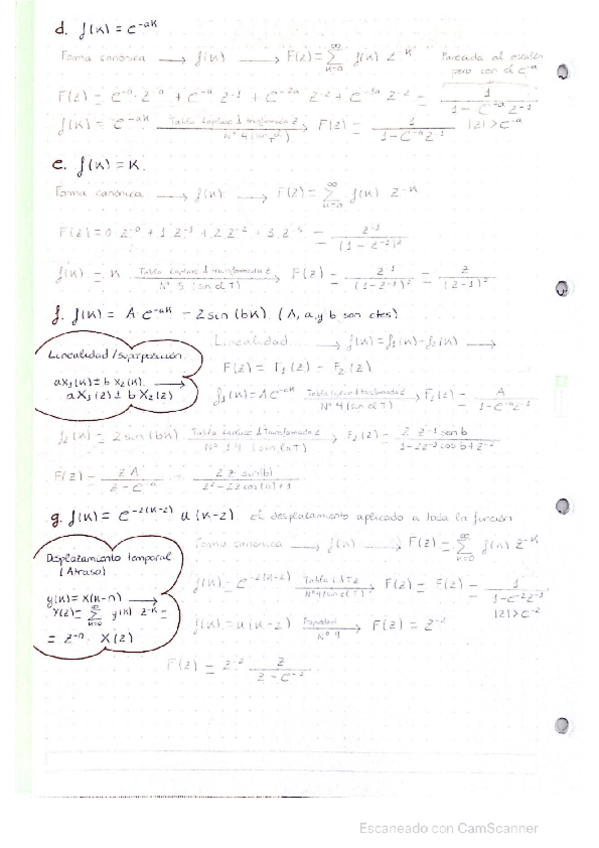 d. f(k) = e^-ak
Forma canónica → f(k) → F(z) = Σ_{k=0}^∞ f(k) z^-k Parecida al escalón
pero con el e^-a
F(z) = e^-0 · z^-0 + e^-a z^-1 + e^-2a z^-2 + e^-3a z^-2 = 1 / (1 - e^-a z^-1)
f(k) = e^-ak Tabla Laplace / transformada z → F(z) = 1 / (1 - e^-a z^-1) |z| > e^-a
Nº 4 (sin T)
e. f(k) = k.
Forma canónica → f(k) → F(z) = Σ_{k=0}^∞ f(k) z^-k
F(z) = 0·z^-0 + 1 z^-1 + 2 z^-2 + 3 z^-3 = z^-1 / (1 - z^-1)^2
f(k) = k Tabla Laplace / transformada z → F(z) = z^-1 / (1 - z^-1)^2 = z / (z-1)^2
Nº 5 (sin el T)
f. f(k) = A·e^-ak - 2sin(bk). (A, a, y b son ctes)
Linealidad/Superposición.
ax₁(k) ± b x₂(k). →
aX₁(z) ± b X₂(z)
Linealidad... → f(k) = f₁(k) - f₂(k) →
F(z) = F₁(z) - F₂(z)
f₁(k) = A e^-ak Tabla Laplace / transformada z → F₁(z) = A / (1 - e^-a z^-1)
Nº 4 (sin el T)
f₂(k) = 2sin(bk) Tabla Laplace / Transformada z → F₂(z) = 2 z^-1 sen b / (1 - 2z^-1 cos b + z^-2)
Nº 14 (sin T)
F(z) = zA / (z - e^-a) - 2z sin(b) / (z^2 - 2z cos(b) + 1)
g. f(k) = e^-2(k-2) u(k-2) el desplazamiento aplicado a toda la función
Desplazamiento temporal
(Atraso)
y(k) = x(k-n) →
Y(z) = Σ_{k=0}^∞ y(k) z^-k =
= z^-n · X(z)
Forma canónica → f(k) → F(z) = Σ_{k=0}^∞ f(k) z^-k
f(k) = e^-2(k-2) Tabla → F(z) = F(z) = 1 / (1 - e^-2 z^-1)
Nº 4 (sin el T) |z| > e^-2
f(k) = u(k-2) Propiedad → F(z) = z^-2
Nº 9
F(z) = z^-2 z / (z - e^-2)
Escaneado con CamScanner